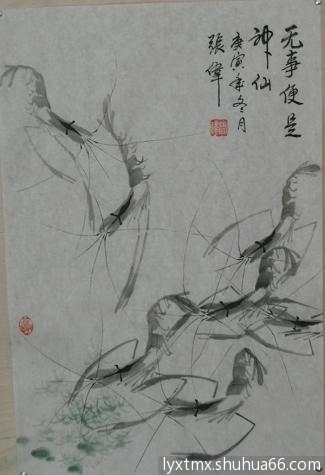 无事便是
神仙
庚寅年冬月
張偉
lyxtmx.shuhua66.com